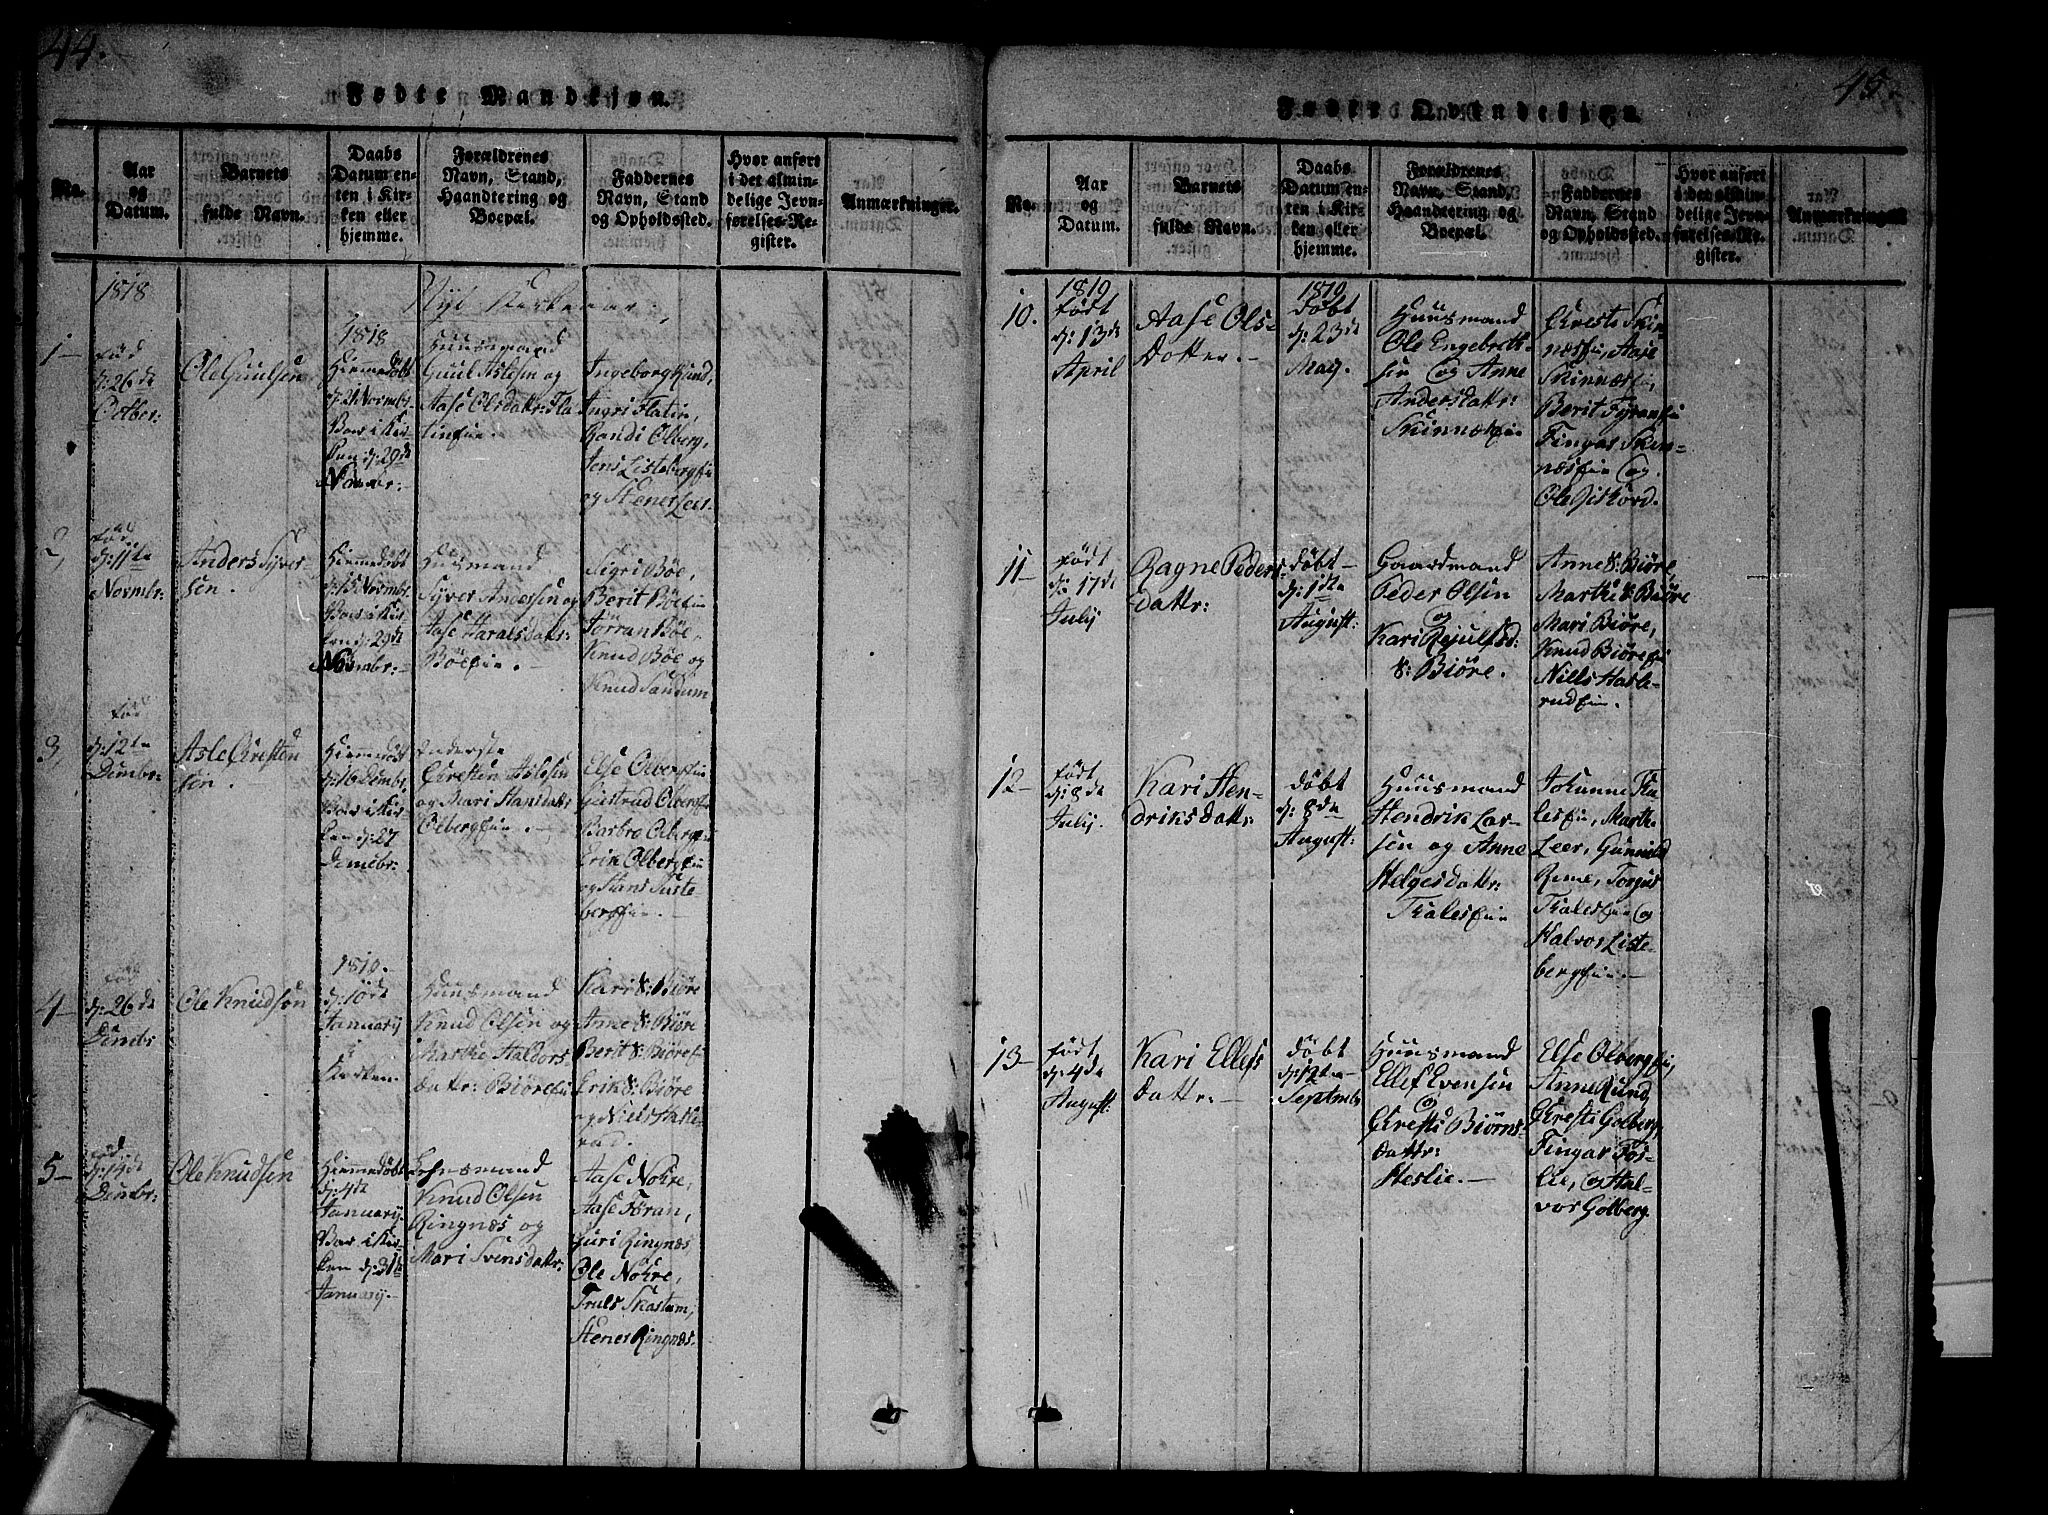 44.
Fødte Mandkjøn.
No.
Aar
og
Datum.
Barnets
fulde Navn.
Daabs
Datum en-
ten i Kir-
ken eller
hjemme.
Forældrenes
Navn, Stand,
Haandtering og
Boepæl.
Faddernes
Navn, Stand
og Opholdssted.
Hvor anført
i det almin-
delige Jevn-
førelses-Re-
gister.
Anmærkninger.
1818
Nyt Kirkeaar
1-
fød
d: 26de
Octber:
Ole Guulsen
1818
Hiemmedøbt
d: 21 Novmbr
Bar i Kir-
ken d: 29de
Novmbr:
Huusmand
Guul Aslesen og
Aase Olsdattr: Fla
tinfie.
Ingeborg Rund,
Ingri Flatin,
Randi Olberg,
Jens Listebergfie
og Stener Leer.
2,
fød
d: 11te
Novmbr:
Anders Syver-
sen.
Hiemmedøbt
d: 15 Novmbr
Bar i Kir-
ken d: 29de
Novmbr:
Husmand
Syver Andersen og
Aase Haralsdattr:
Böefie.
Sigri Böe,
Berit Böefie
Torran Böe,
Knud Böe og
Knud Sandum
3,
fød
d: 12te
Dcmbr:
Asle Christen
sen.
Hiemmedøbt
d: 16 Dcmbr
Bar i Kir
ken d: 27
Dcmbr:
Inderste
Christen Aslesen
og Mari Hansdattr
Olbergfie.
Else Olbergfie
Giertrud Olbergfie
Barbro Olbergfie
Erik Olbergfie
og Hans Liste-
bergfie.
4-
fød
d: 26de
Dcmbr
Ole Knudsøn
1819.
d: 10de
January
i
Kirken.
Huusmand
Knud Olsen og
Marthe Haldors
datr: Biörefie
Kari S: Biöre
Anne S: Biöre
Berit S: Biörefie
Erik S: Biöre
og Niels Hasle-
rud.
5-
fød
d: 14de
Dcmbr:
Ole Knudsen
Hiemmedøbt
d: 4de
January.
Bar i Kir-
ken d: 31te
January.
Knud Olsen
Ringnæs og
Mari Svensdattr:
Aase Nohre,
Aase Töran,
Guri Ringnæs
Ole Nohre,
Truls Skartum,
Stener Ringnæs.
45.
Fødte Qvindekjøn.
No.
Aar
og
Datum.
Barnets
fulde Navn.
Daabs
Datum en-
ten i Kir-
ken eller
hjemme.
Forældrenes
Navn, Stand,
Haandtering og
Boepæl.
Faddernes
Navn, Stand
og Opholdssted.
Hvor anført
i det almin-
delige Jevn-
førelses-Re-
gister.
Anmærkninger.
10.
1819
født
d: 13de
April
Aase Ols-
Datter.
1819
døbt
d: 23de
May.
Huusmand
Ole Engebret-
sen og Anne
Andersdattr:
Skinnæsfie
Christi Skin
næsfie, Aase
Skinnæsfie,
Berit Tyranfie
Fingar Skin-
næsfie og
Ole Giskörd.
11-
født
d: 17de
July
Ragne Peders
dattr:
døbt
d: 1ste
August:
Gaardmand
Peder Olsen
og
Kari Rejulfsd:
S: Biöre.
Anne S: Biöre,
Marthe S: Biöre
Mari Biöre,
Knud Biörefie
Niels Hasle-
rudfie.
12-
født
d: 8de
July.
Kari Hen-
driksdattr:
døbt
d: 8de
August:
Huusmand
Hendrik Lar-
sen og Anne
Helgesdattr:
Tralesfie
Johanne Tra
lesfie, Marth.
Leer, Gunnild
Rime, Torgus
Tralesfie og
Halvor Liste-
bergfie.
13-
født
d: 4de
August:
Kari Ellefs
datter:
døbt
d: 12te
Septmbr
Huusmand
Ellef Evensen
og
Christi Biörns-
dattr:
Heslie.
Else Olbergfie,
Anne Rund,
Christi Golberg,
Fingar Fos-
lie, og Hal-
vor Golberg.